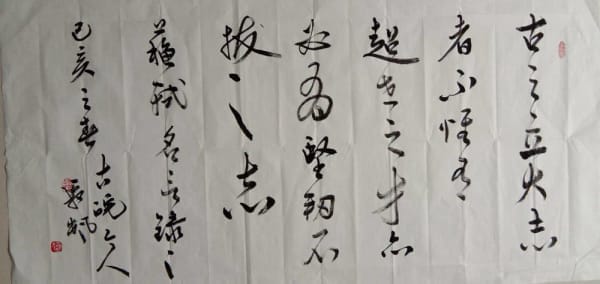 古之立大志
者不惟有
超世之才亦
必有堅韌不
拔之志
蘇軾名言錄之
己亥之春 古皖人